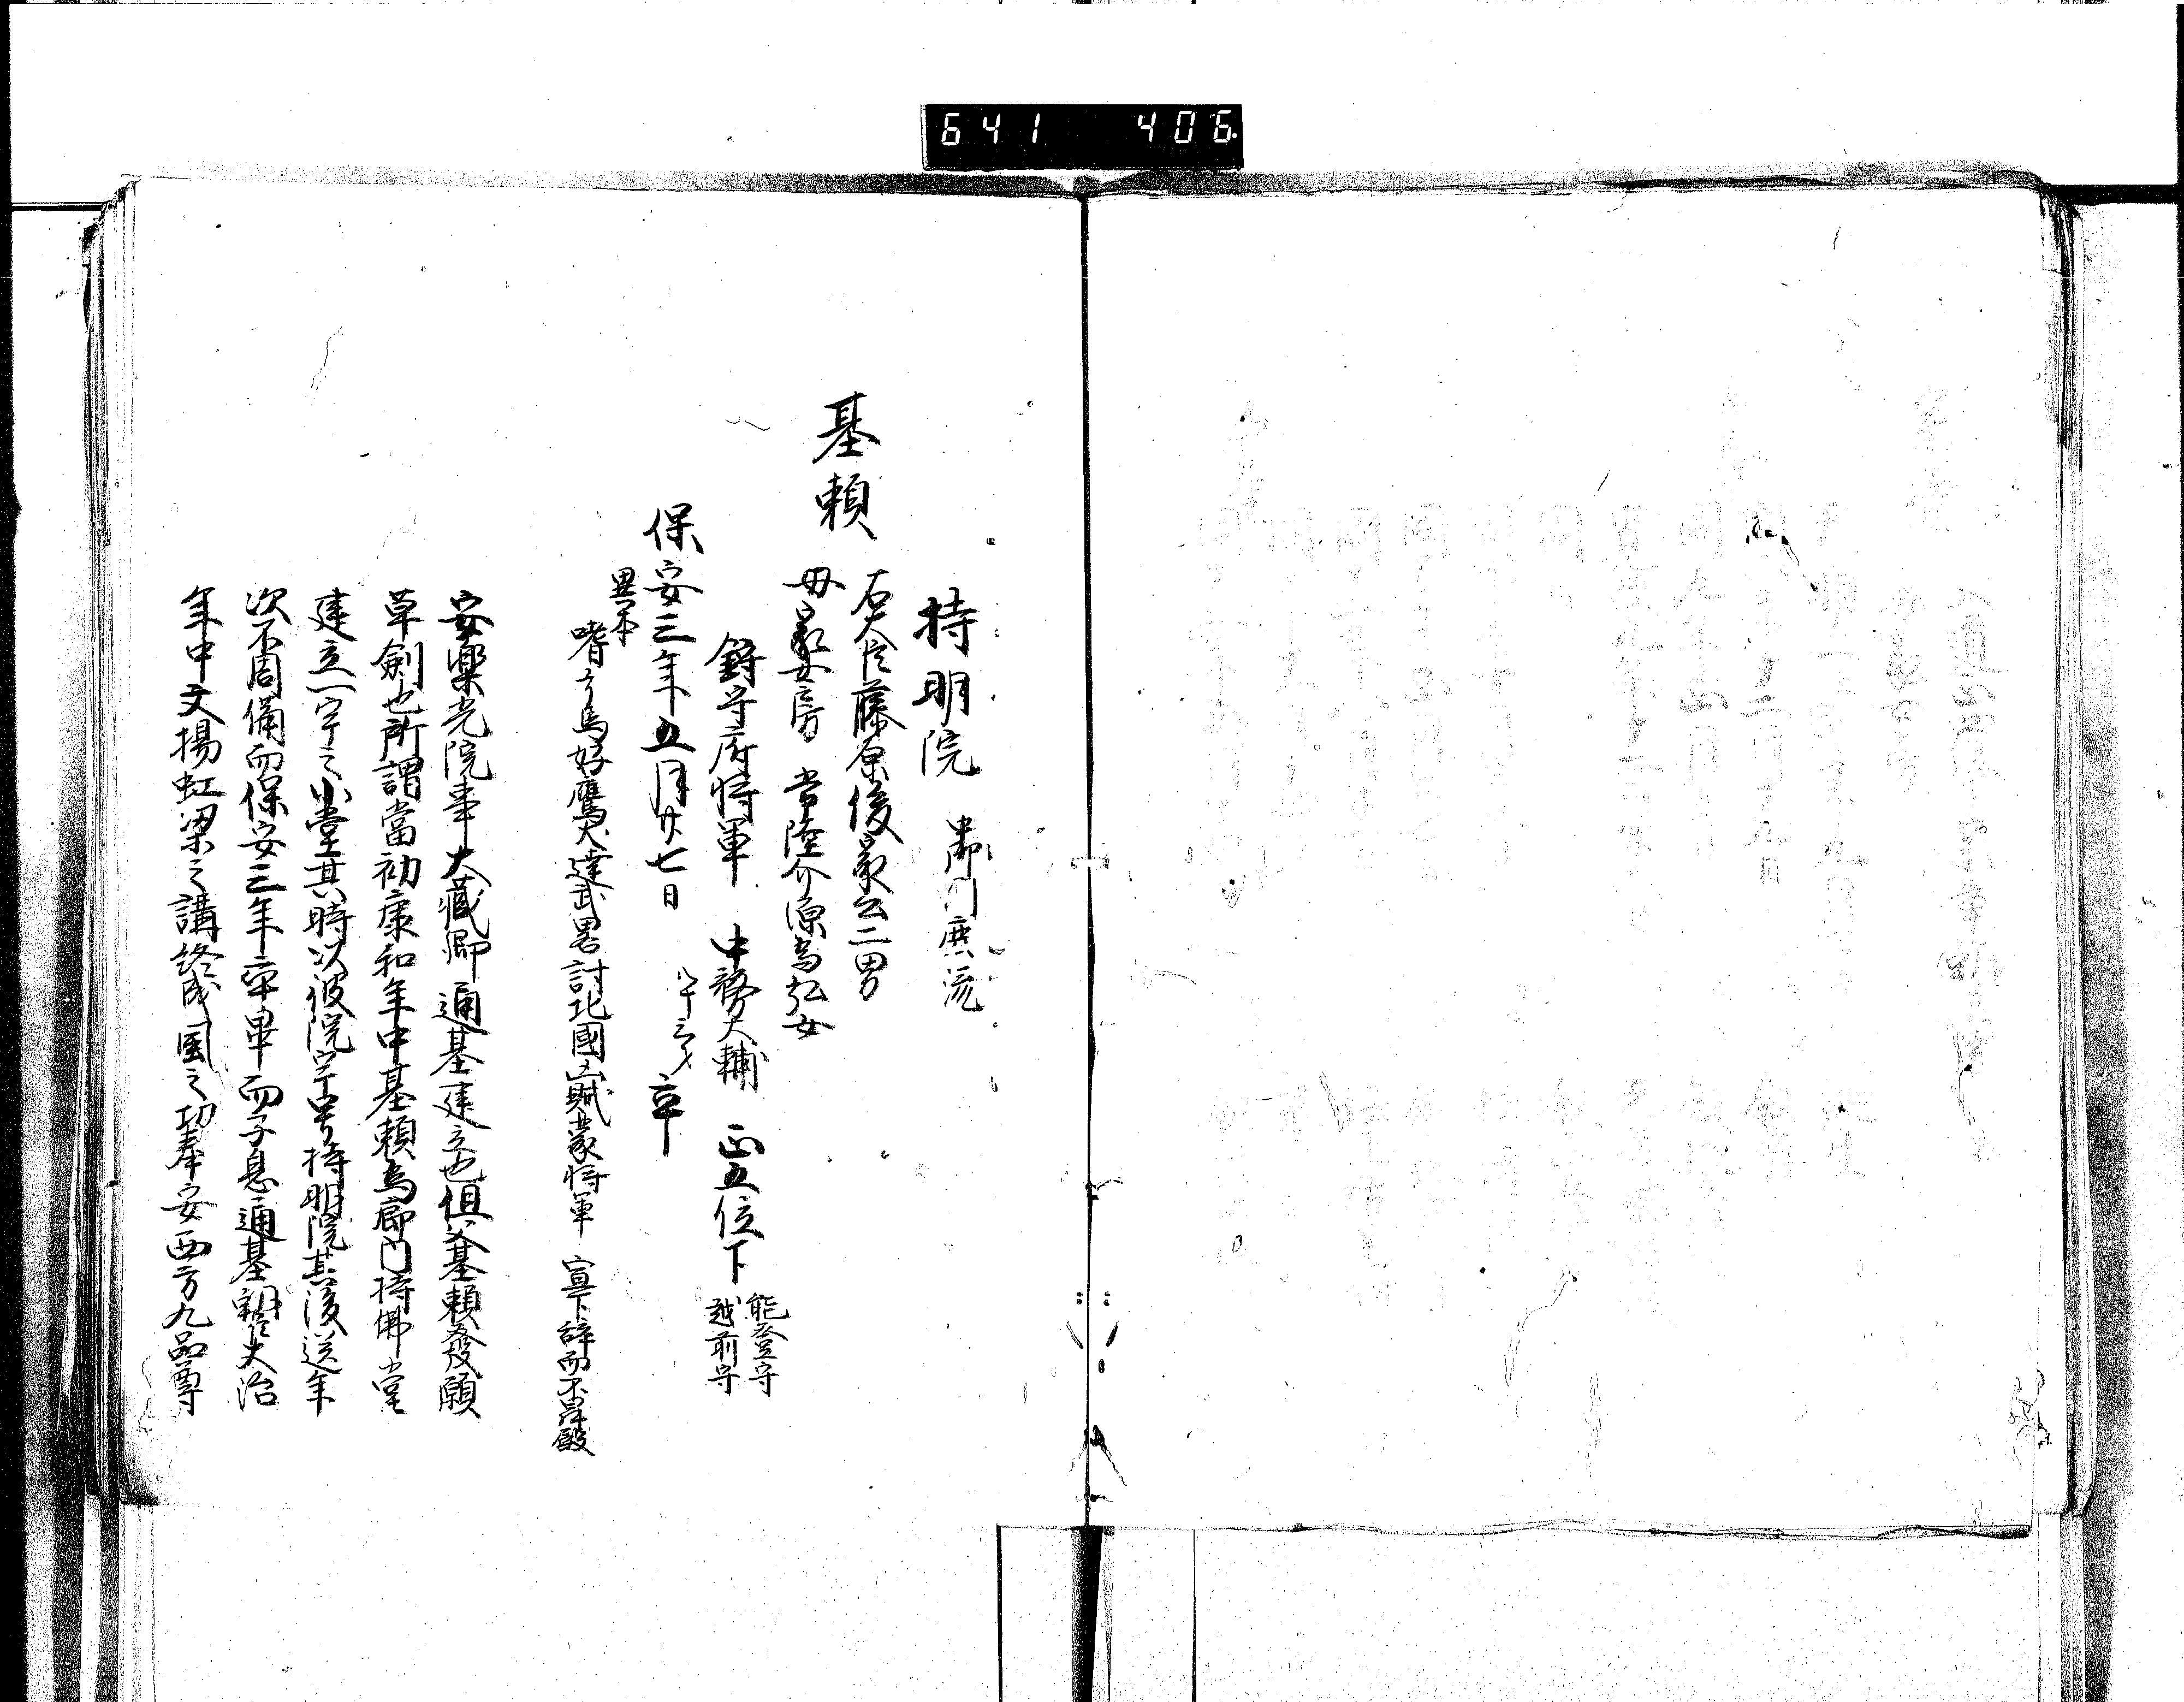 641 406
持明院
庶流
基頼
右大臣藤原俊家公二男
母家女房 常陸介源為弘女
鎮守府将軍 中務大輔 正五位下 能登守 越前守
保安三年五月廿七日 八十三才 卒
異本
嗜弓馬好鷹犬達武畧討北國凶賊蒙将軍 宣下辞而不昇殿
安樂光院事大藏卿通基建立也但父基頼發願
草創也所謂當初康和年中基頼為廊門持佛堂
建立一宇之小堂其時以彼院宇号持明院其後送年
次不周備而保安三年卒畢而子息通基朝臣大治
年中又揚虹梁之講終成風之功奉安西方九品尊